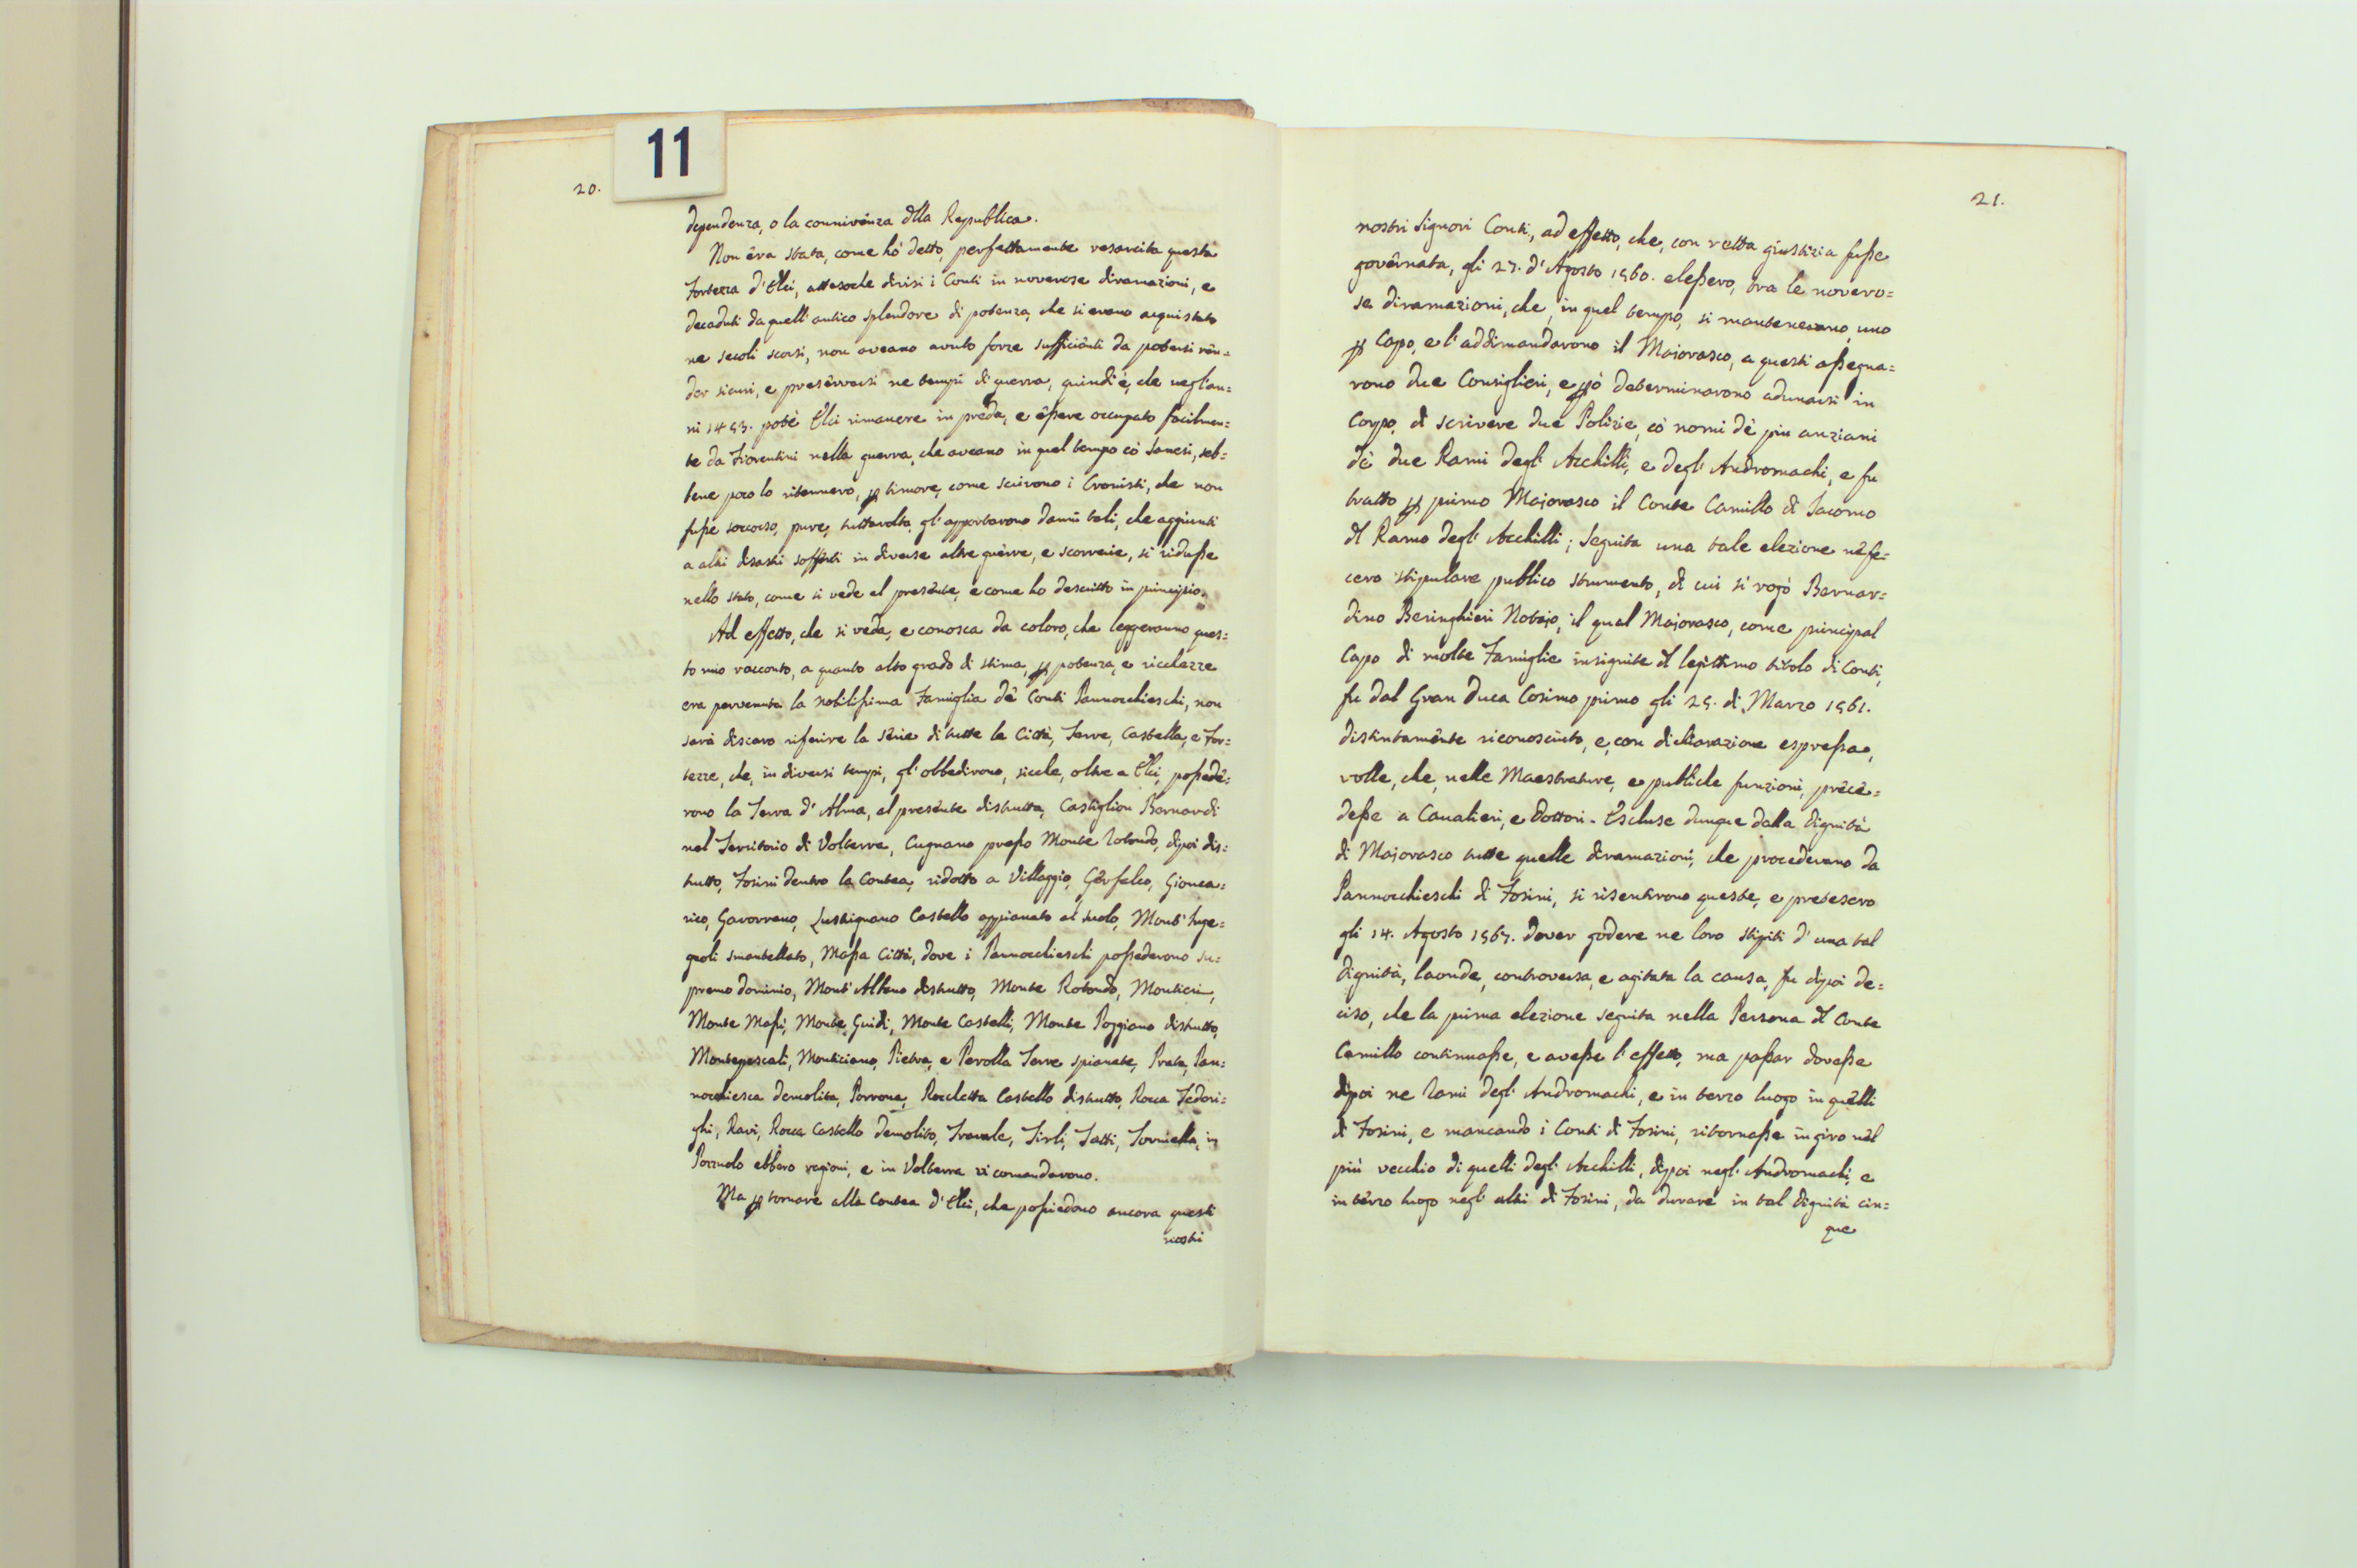 11
20.
dependenza, o la connivenza dlla Republica.
Non êra stata, come hò detto, perfettamente resarcita questa
Fortezza d'Elci, attesoche divisi i Conti in noverose diramazioni, e
decaduti da quell'antico splendore di potenza, che si erano acquistato
ne secoli scorsi, non aveano avuto forze sufficiênti da potersi rên=
der sicuri, e presêrvarsi ne tempi di guerra, quindi è, che negl'an=
ni 1453. potè Elci rimanere in preda, e êssere occupato facilmen=
te da Fiorentini nella guerra, che aveano in quel tempo cò Sanesi, seb=
bene poco lo ritennero, p timore, come scrivono i Cronisti, che non
fusse soccorso, pure, tuttavolta, gl'apportarono danni tali, che aggiunti
a altri disastri sofferti in diverse altre guêrre, e scorrerie, si ridusse
nello stato, come si vede al presênte, e come ho descritto in principio.
Ad effetto, che si veda, e conosca da coloro, che leggeranno ques=
to mio racconto, a quanto alto grado di stima, p potenza, e ricchezze
era pervenuta la nobilissima Famiglia dè Conti Pannocchieschi, non
sarà discaro riferire la sêrie di tutte le Città, Terre, Castella, e For=
tezze, che, in diversi tempi, gl'obbedirono, sicche, oltre a Elci, possedê=
rono la Terra d'Alma, al presênte distrutta, Castiglion Bernardi
nel Territorio di Volterra, Cugnano presso Monte Rotondo, dipoi dis=
trutto, Fosini dentro la Contea, ridotto a Villaggio, Gêrfalco, Gionca=
rico, Gavorrano, Lustignano Castello appianato al suolo, Mont'Inge=
gnoli smantellato, Massa Città, dove i Pannocchieschi possederono su=
premo dominio, Mont'Albano distrutto, Monte Rotondo, Montieri,
Monte Massi, Monte Guidi, Monte Castelli, Monte Poggiano distrutto,
Montepescali, Monticiano, Pietra, e Perolla Terre spianate, Prata, Pan=
nocchiesca demolita, Porrona, Rocchetta Castello distrutto, Rocca Federi=
ghi, Ravi, Rocca Castello demolito, Travale, Tirli, Tatti, Torniella, in
Pozzuolo ebbero ragioni, e in Volterra vi comandarono.
Ma p tornare alla Contea d'Elci, che possiedono ancora questi
nostri
21.
nostri Signori Conti, ad effetto, che, con retta giustizia fusse
govêrnata, gli 27. d'Agosto 1560. elessero, tra le novero=
se diramazioni, che, in quel tempo, si mantenevano, uno
p Capo, e l'addimandarono il Majorasco, a questi assegna=
rono due Consiglieri, e pò determinarono adunarsi in
Corpo, di scrivere due Polizie, cò nomi dè più anziani
dè due Rami degl'Acchilli, e degl'Andromachi, e fu
tratto p primo Majorasco il Conte Camillo di Jacomo
dl Ramo degl'Acchilli; Seguita una tale elezione nê fe=
cero stipulare publico strumento, di cui si rogò Bernar=
dino Beringhieri Notajo, il qual Majorasco, come principal
Capo di molte Famiglie insignite dl legittimo titolo di Conti,
fu dal Gran Duca Cosimo primo gli 25. di Marzo 1561.
distintamênte riconosciuto, e, con dichiarazione espressa,
volle, che, nelle Maestrature, e publiche funzioni, prêcê=
desse a Cavalieri, e Dottori. Escluse dunque dalla dignità
di Majorasco tutte quelle diramazioni, che procedevano da
Pannocchieschi di Fosini, si risentirono queste, e pretesero
gli 14. Agosto 1567. dover godere ne loro stipiti d'una tal
dignità, laonde, controversa, e agitata la causa, fu dipoi de=
ciso, che la prima elezione seguita nella Persona dl Conte
Camillo continuasse, e avesse l'effetto, ma passar dovesse
dipoi ne Rami degl'Andromachi, e in terzo luogo in quêlli
di Fosini, e mancando i Conti di Fosini, ritornasse in giro nel
più vecchio di quelli degl'Acchilli, dipoi negl'Andromachi, e
in têrzo luogo negl'altri di Fosini, da durare in tal dignità cin=
que